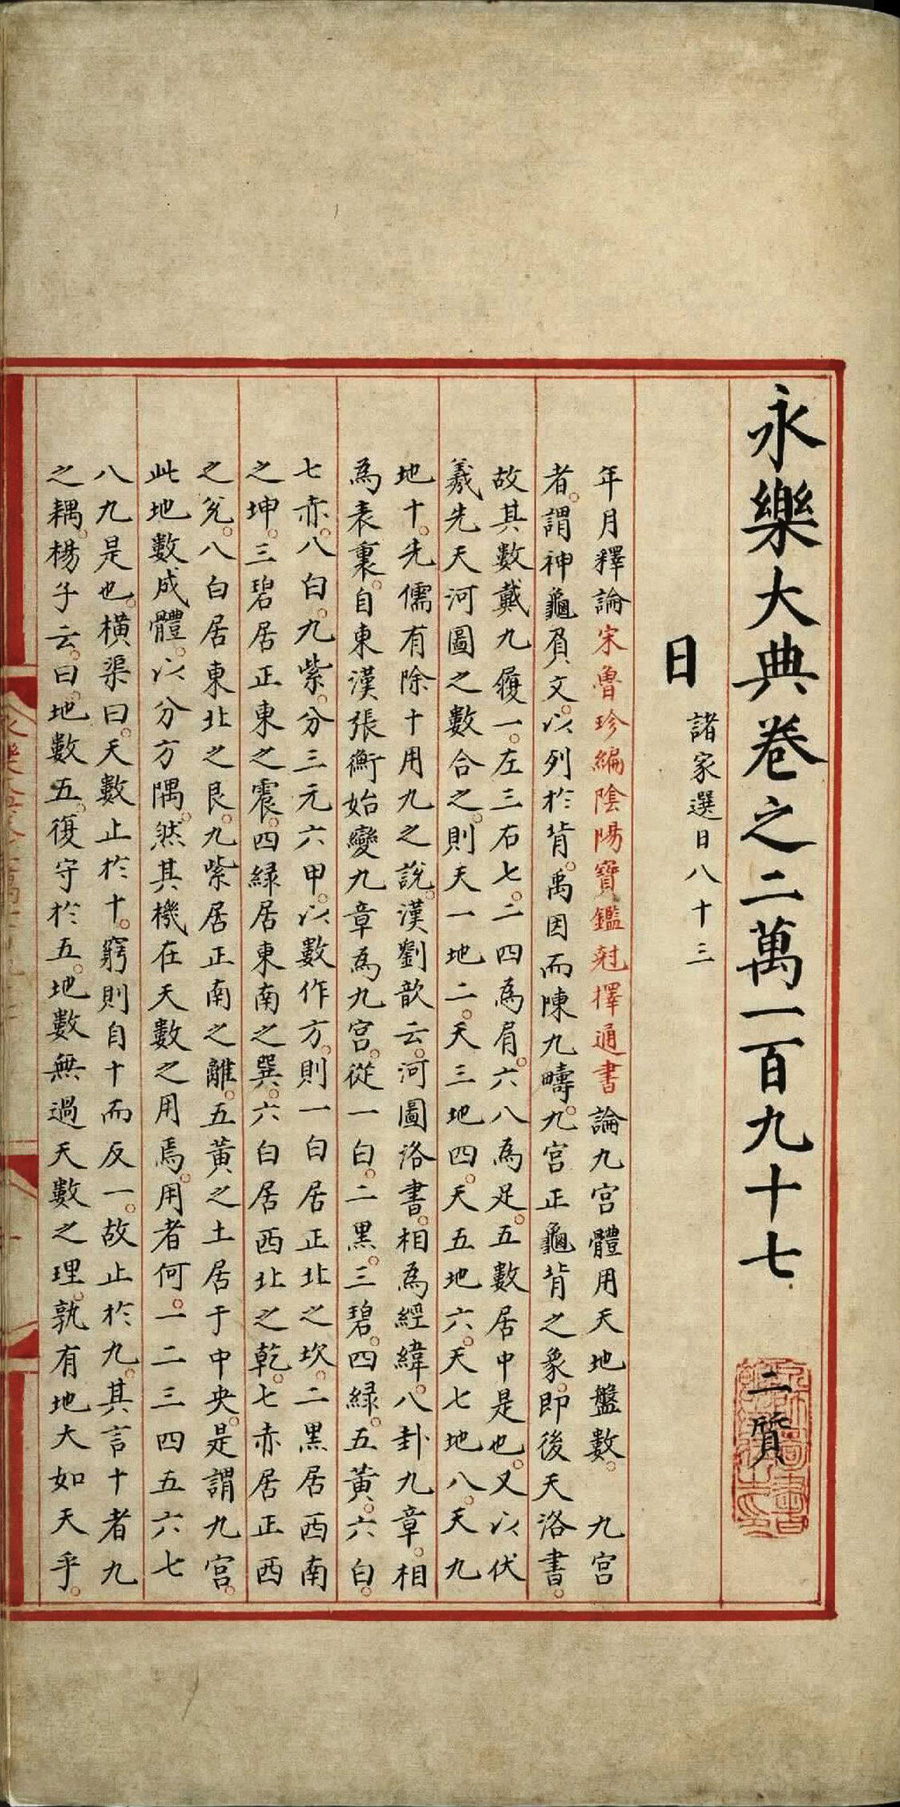 永樂大典卷之二萬一百九十七 二質
日 諸家選日八十三
年月釋論宋魯珍編陰陽寶鑑尅擇通書論九宮體用天地盤數。九宮
者。謂神龜負文。以列於背。禹因而陳九疇。九宮正龜背之象。即後天洛書。
故其數戴九履一。左三右七。二四為肩。六八為足。五數居中是也。又以伏
羲先天河圖之數合之。則天一地二。天三地四。天五地六。天七地八。天九
地十。先儒有除十用九之說。漢劉歆云。河圖洛書。相為經緯。八卦九章。相
為表裏。自東漢張衡始變九章為九宮。從一白。二黑。三碧。四綠。五黃。六白。
七赤。八白。九紫。分三元六甲。以數作方。則一白居正北之坎。二黑居西南
之坤。三碧居正東之震。四綠居東南之巽。六白居西北之乾。七赤居正西
之兌。八白居東北之艮。九紫居正南之離。五黃之土居于中央。是謂九宮。
此地數成體。以分方隅。然其機在天數之用焉。用者何。一二三四五六七
八九是也。橫渠曰。天數止於十。窮則自十而反一。故止於九。其言十者九
之耦。楊子云。曰。地數五。復守於五。地數無過天數之理。孰有地大如天乎。